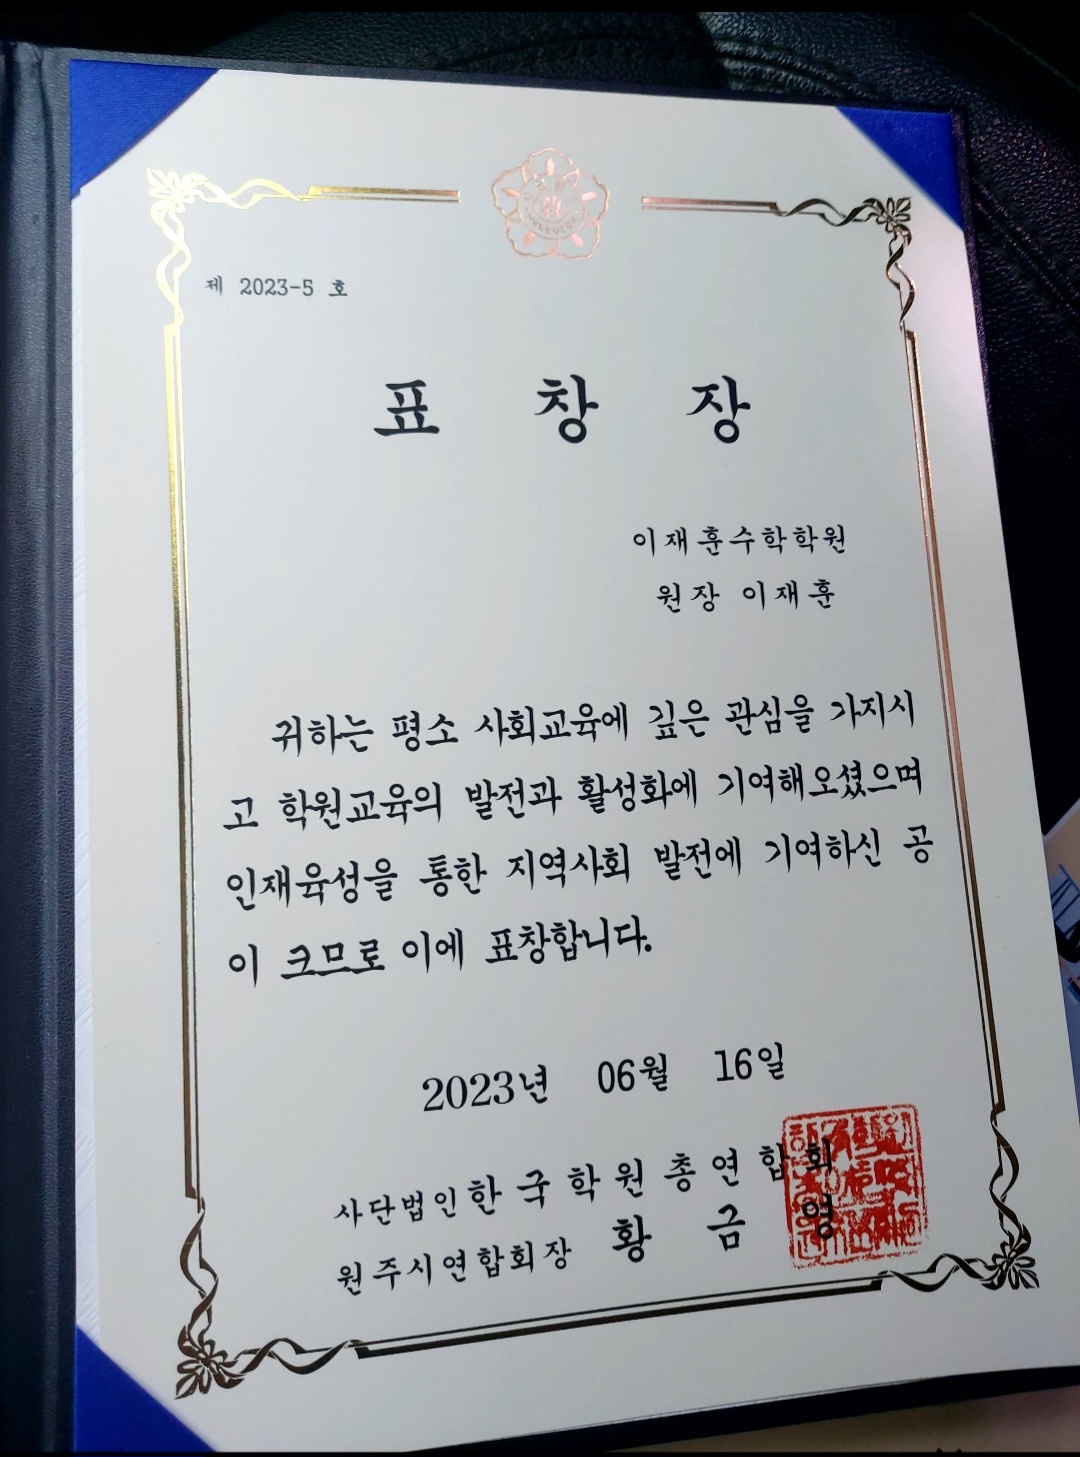 제 2023-5 호
표 창 장
이재훈수학학원
원장 이재훈
귀하는 평소 사회교육에 깊은 관심을 가지시
고 학원교육의 발전과 활성화에 기여해오셨으며
인재육성을 통한 지역사회 발전에 기여하신 공
이 크므로 이에 표창합니다.
2023년 06월 16일
사단법인한국학원총연합회
원주시연합회장 황 금 영